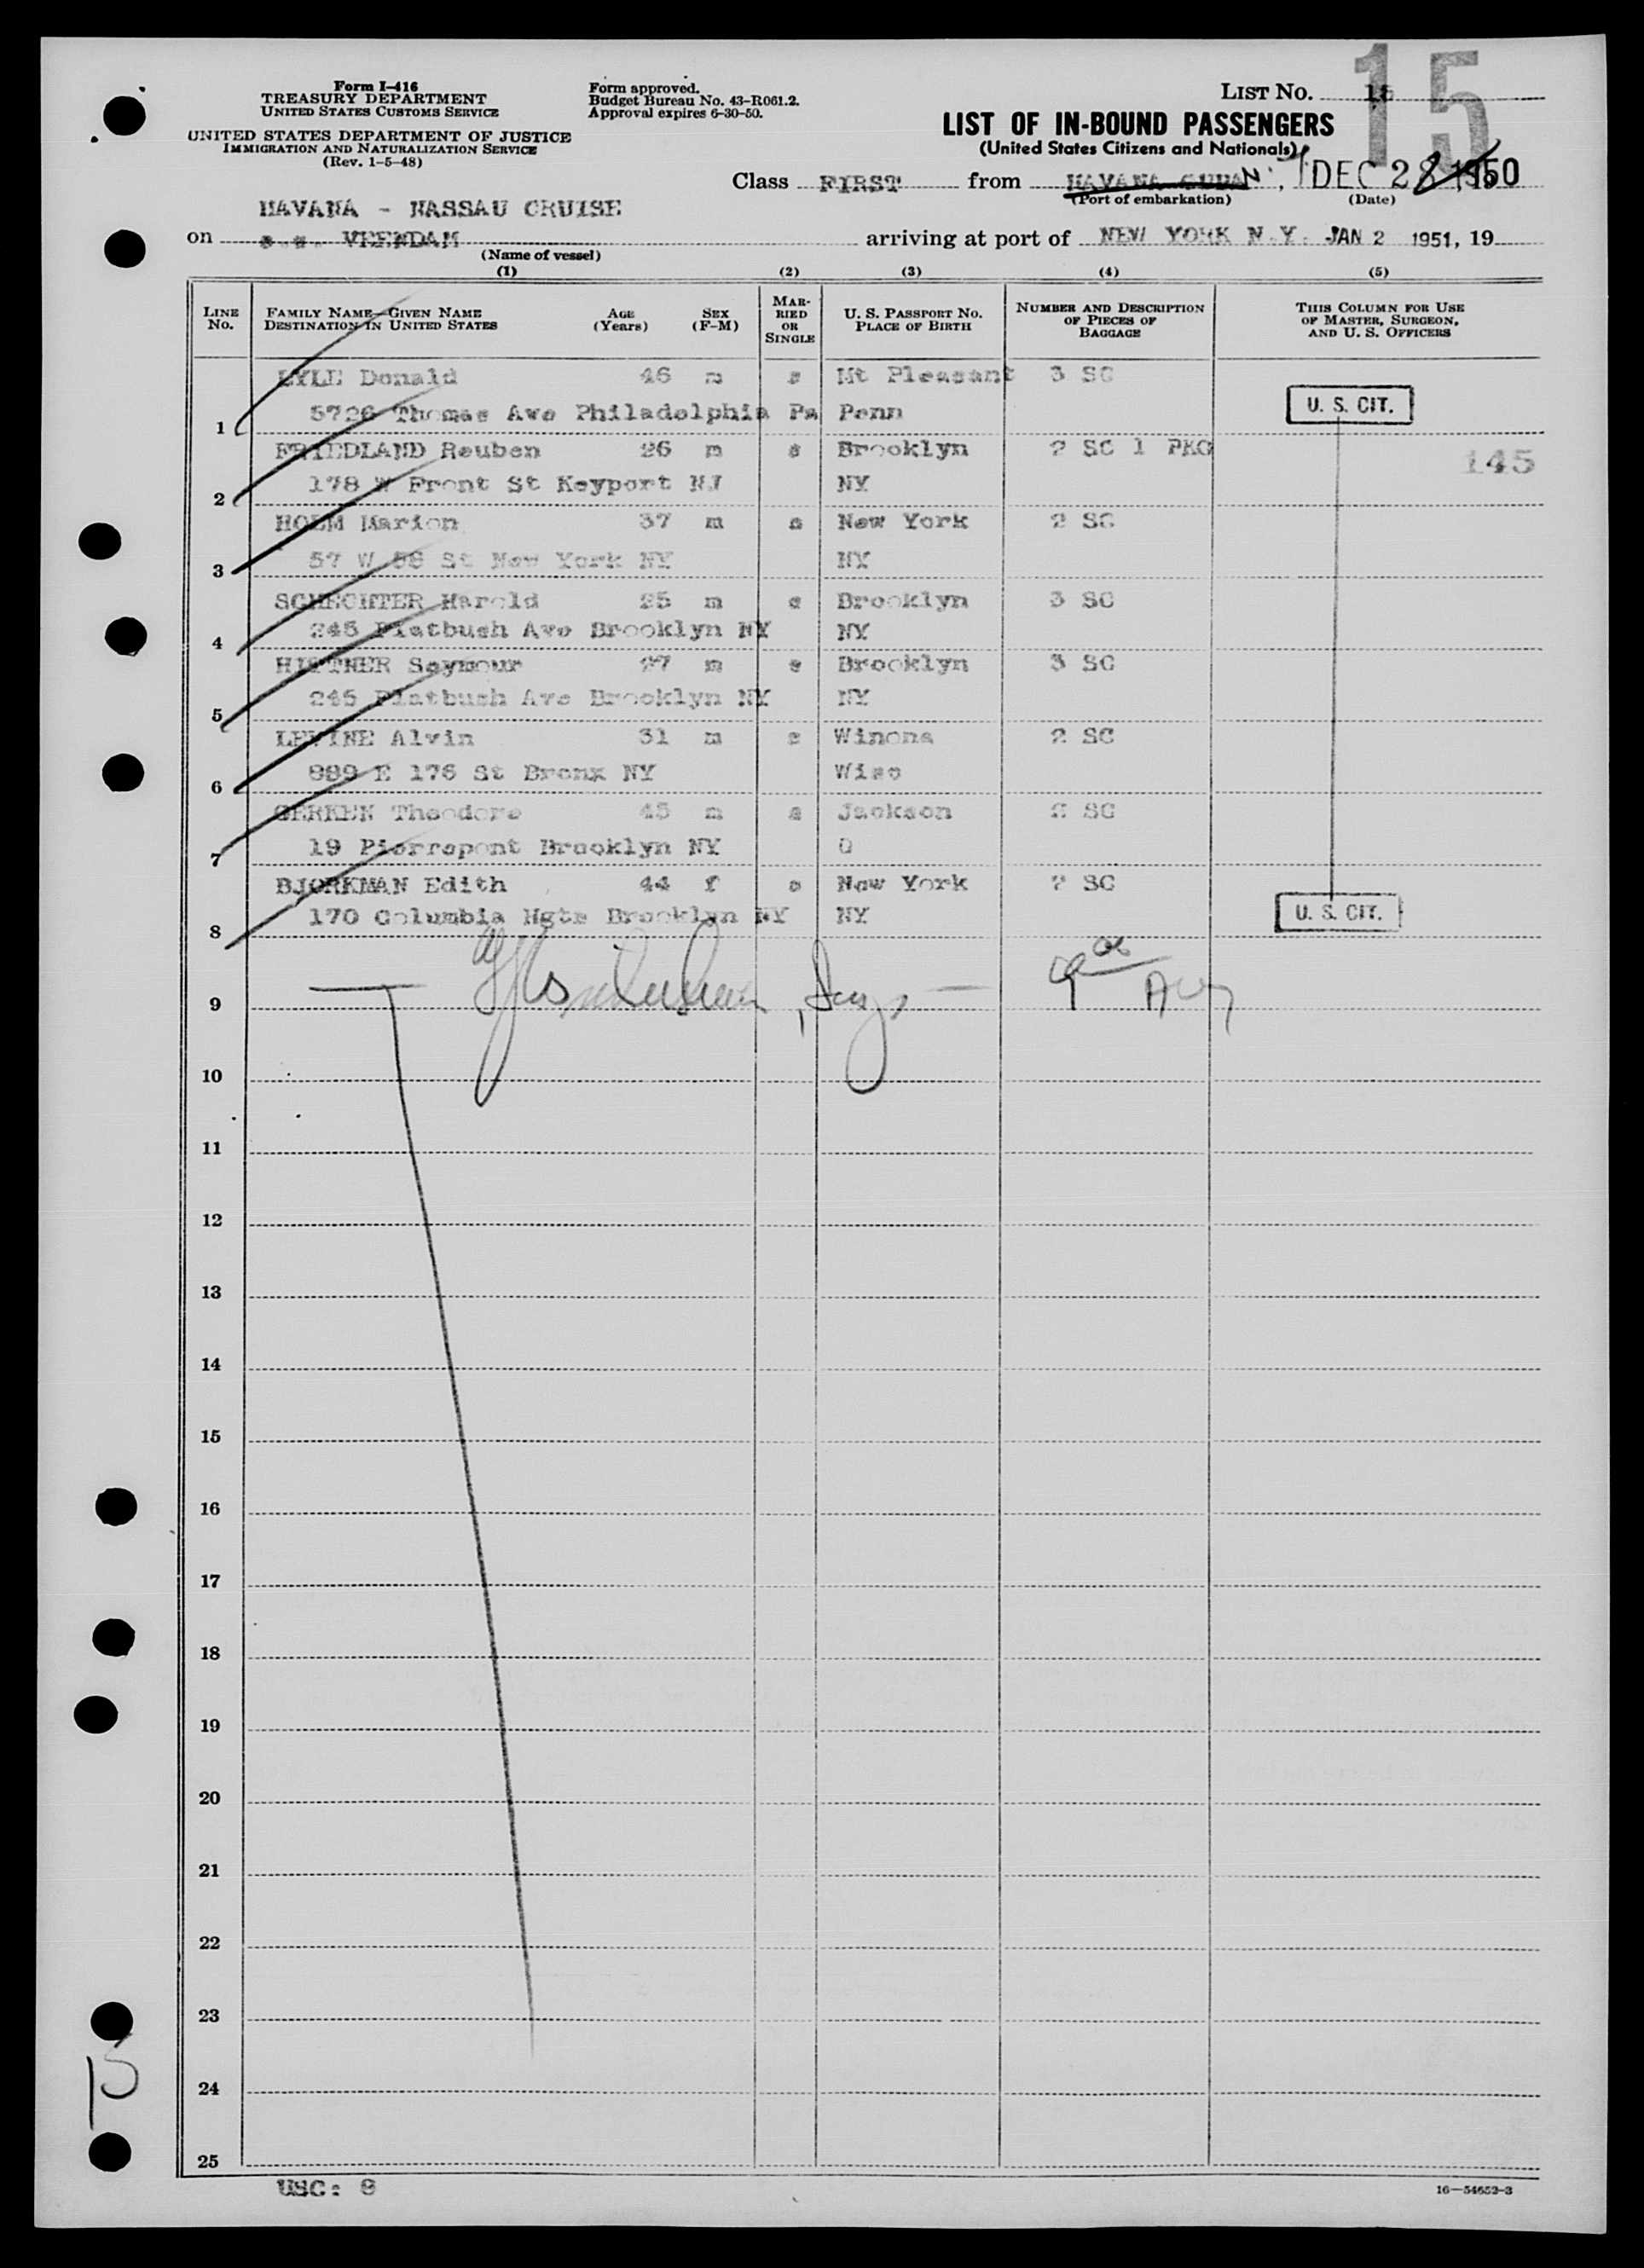 15
Form I-416
TREASURY DEPARTMENT
UNITED STATES CUSTOMS SERVICE
UNITED STATES DEPARTMENT OF JUSTICE
IMMIGRATION AND NATURALIZATION SERVICE
(Rev. 1-5-48)
Form approved.
Budget Bureau No. 43-R061.2.
Approval expires 6-30-50.
LIST NO.
LIST OF IN-BOUND PASSENGERS
(United States Citizens and Nationals)
Class FIRST from HAVANA CUBA N.Y. DEC 28 1950
(Port of embarkation) (Date)
HAVANA - NASSAU CRUISE
on s.s. VEENDAM arriving at port of NEW YORK N.Y. JAN 2 1951, 19
(Name of vessel)
(1) (2) (3) (4) (5)
LINE NO. FAMILY NAME—GIVEN NAME DESTINATION IN UNITED STATES AGE (Years) SEX (F-M) MARRIED OR SINGLE U. S. PASSPORT NO. PLACE OF BIRTH NUMBER AND DESCRIPTION OF PIECES OF BAGGAGE THIS COLUMN FOR USE OF MASTER, SURGEON, AND U. S. OFFICERS
LYLE Donald 46 m s Mt Pleasant 3 SC
1 5726 Thomas Ave Philadelphia Pa Penn U. S. CIT.
FRIEDLAND Reuben 26 m s Brooklyn 2 SC 1 PKG
145
2 178 W Front St Keyport NJ NY
HOLM Marion 37 m s New York 2 SC
3 57 W 58 St New York NY NY
SCHECHTER Harold 25 m s Brooklyn 3 SC
4 245 Flatbush Ave Brooklyn NY NY
Seymour 27 m s Brooklyn 3 SC
5 245 Flatbush Ave Brooklyn NY NY
LEVINE Alvin 31 m s Winona 2 SC
6 E 176 St Bronx NY Wisc
GERKEN Theodore 45 m s Jackson 2 SC
7 19 Pierrepont Brooklyn NY O
BJORKMAN Edith 44 f s New York 2 SC
8 170 Columbia Hgts Brooklyn NY NY U. S. CIT.
9
10
11
12
13
14
15
16
17
18
19
20
21
22
23
24
25
USC: 8
16—54652-3
15